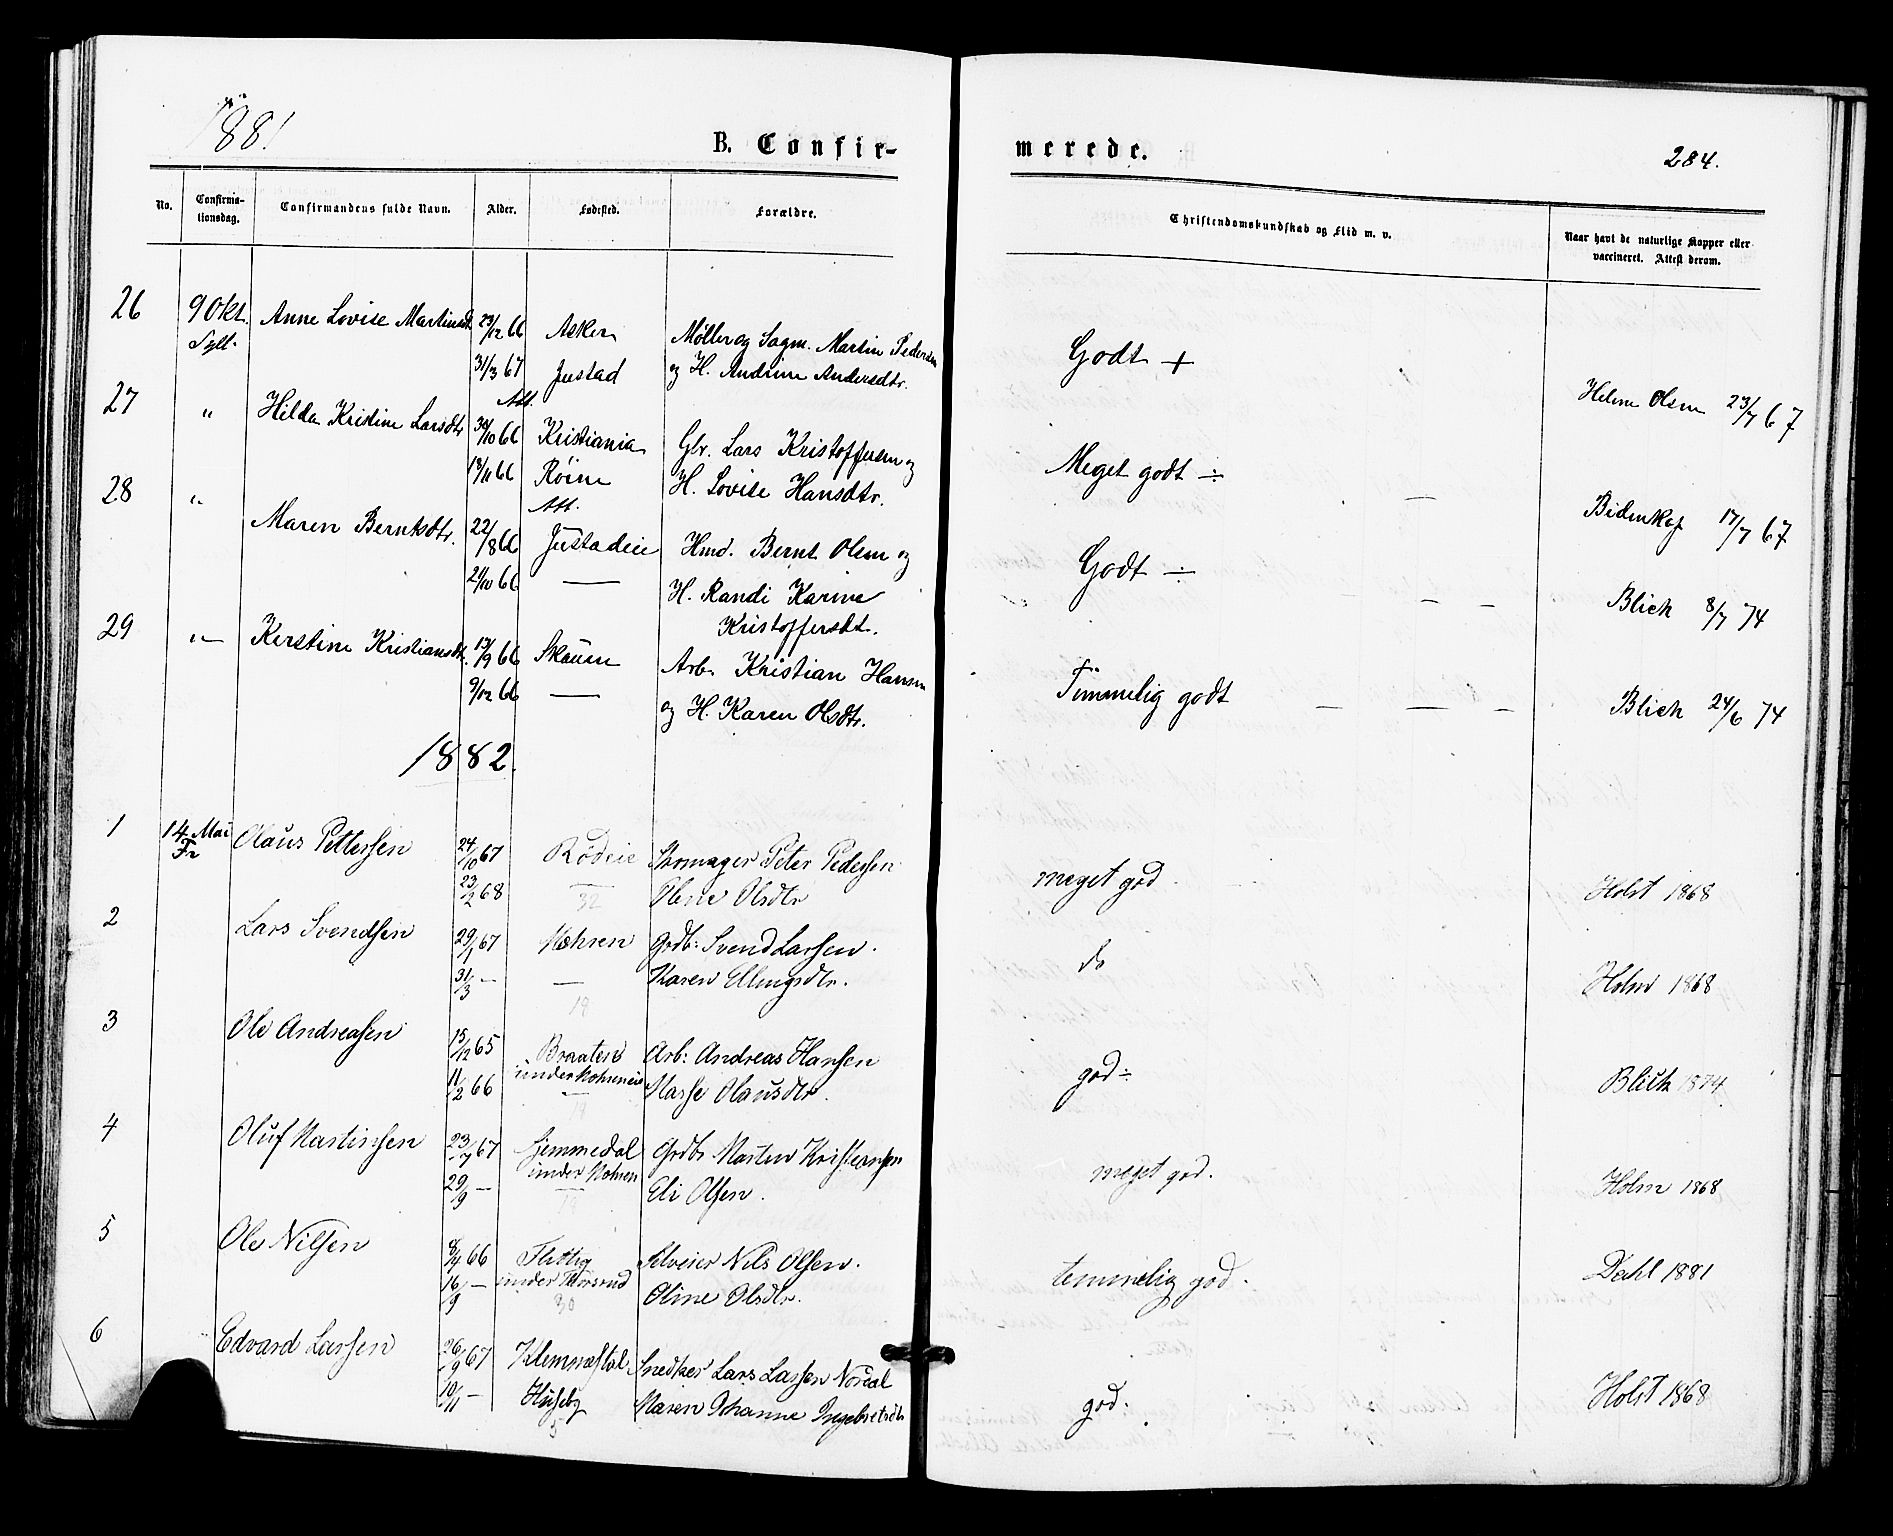 1881
B. Confir-
merede.
284.
No.
Confirma-
tionsdag.
Confirmandens fulde Navn.
Alder.
Fødested.
Forældre.
Christendomskundskab og Flid m. v.
Naar havt de naturlige Kopper eller
vaccineret. Attest derom.
26 9 Okt. Anne Lovise Martinsdt. 23/12 66 Asker Møller og Sagm. Martin Pedersen Godt + Helene Olsen 23/7 67
31/3 67 Justad og H. Andrine Andersdtr.
Att.
27 " Hilda Kristine Larsdtr 30/10 66 Kristiania Gbr. Lars Kristoffersen og Meget godt ÷ Bidenkap 17/7 67
18/11 66 Röine H. Lovise Hansdtr.
Att.
28 " Maren Berntsdtr. 22/8 66 Justadeie Hmd. Bernt Olsen og Godt ÷ — — Blich 8/7 74
21/10 66 — H. Randi Karine
Kristoffersdt.
29 " Kerstine Kristiansdt. 19/9 66 Skauen Arb. Kristian Hansen Temmelig godt — — — Blich 24/6 74
9/12 66 — og H. Karen Olsdtr.
1882.
1 14 Mai Olaus Pettersen 24/10 67 Rødeie Skomager Peter Pedersen meget god. Holst 1868
Fr 23/2 68 — Olene Olsdtr
32
2 Lars Svendsen 29/1 67 Mæhren Grdb: Svend Larsen. do Holm 1868
31/3 — — Karen Ellingsdtr.
18
3 Ole Andreasen 15/12 65 Braaten Arb: Andreas Hansen god ÷ Blich 1874
11/2 66 under Olausdtr.
4 Oluf Martinsen 23/7 67 Gjemmedal Grdb Martin meget god. Holm 1868
29/9 — under Eli Olsen.
5 Ole Nilsen 8/4 66 under Selveier Nils Olsen. temmelig god. Dahl 1881
16/9 — Oline Olsdtr.
30
6 Edvard Larsen 26/9 67 Snedker Lars Larsen god. Holst 1868
10/11 — Huseby Maren Johanne Ingebretsdtr
5